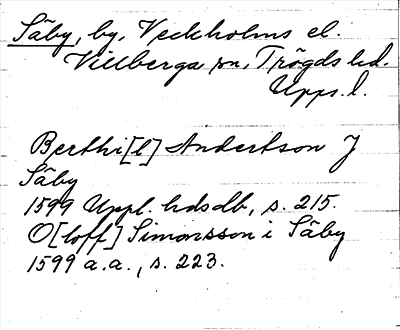 Säby, by, Veckholms el.
Villberga sn, Trögds hd.
Upps. l.
Berthi[l] Anderßon J
Säby
1599 Uppl. hdsdb, s. 215.
O[loff] Simonsson i Säby
1599 a.a., s. 223.